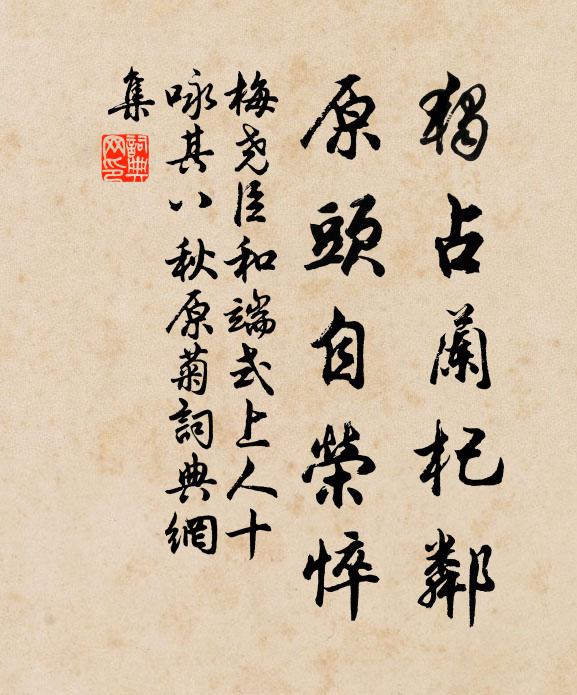 獨占蘭杞鄰
原頭自榮悴
梅堯臣和端式上人十
咏其八秋原菊詞典網
集
詞典
网印